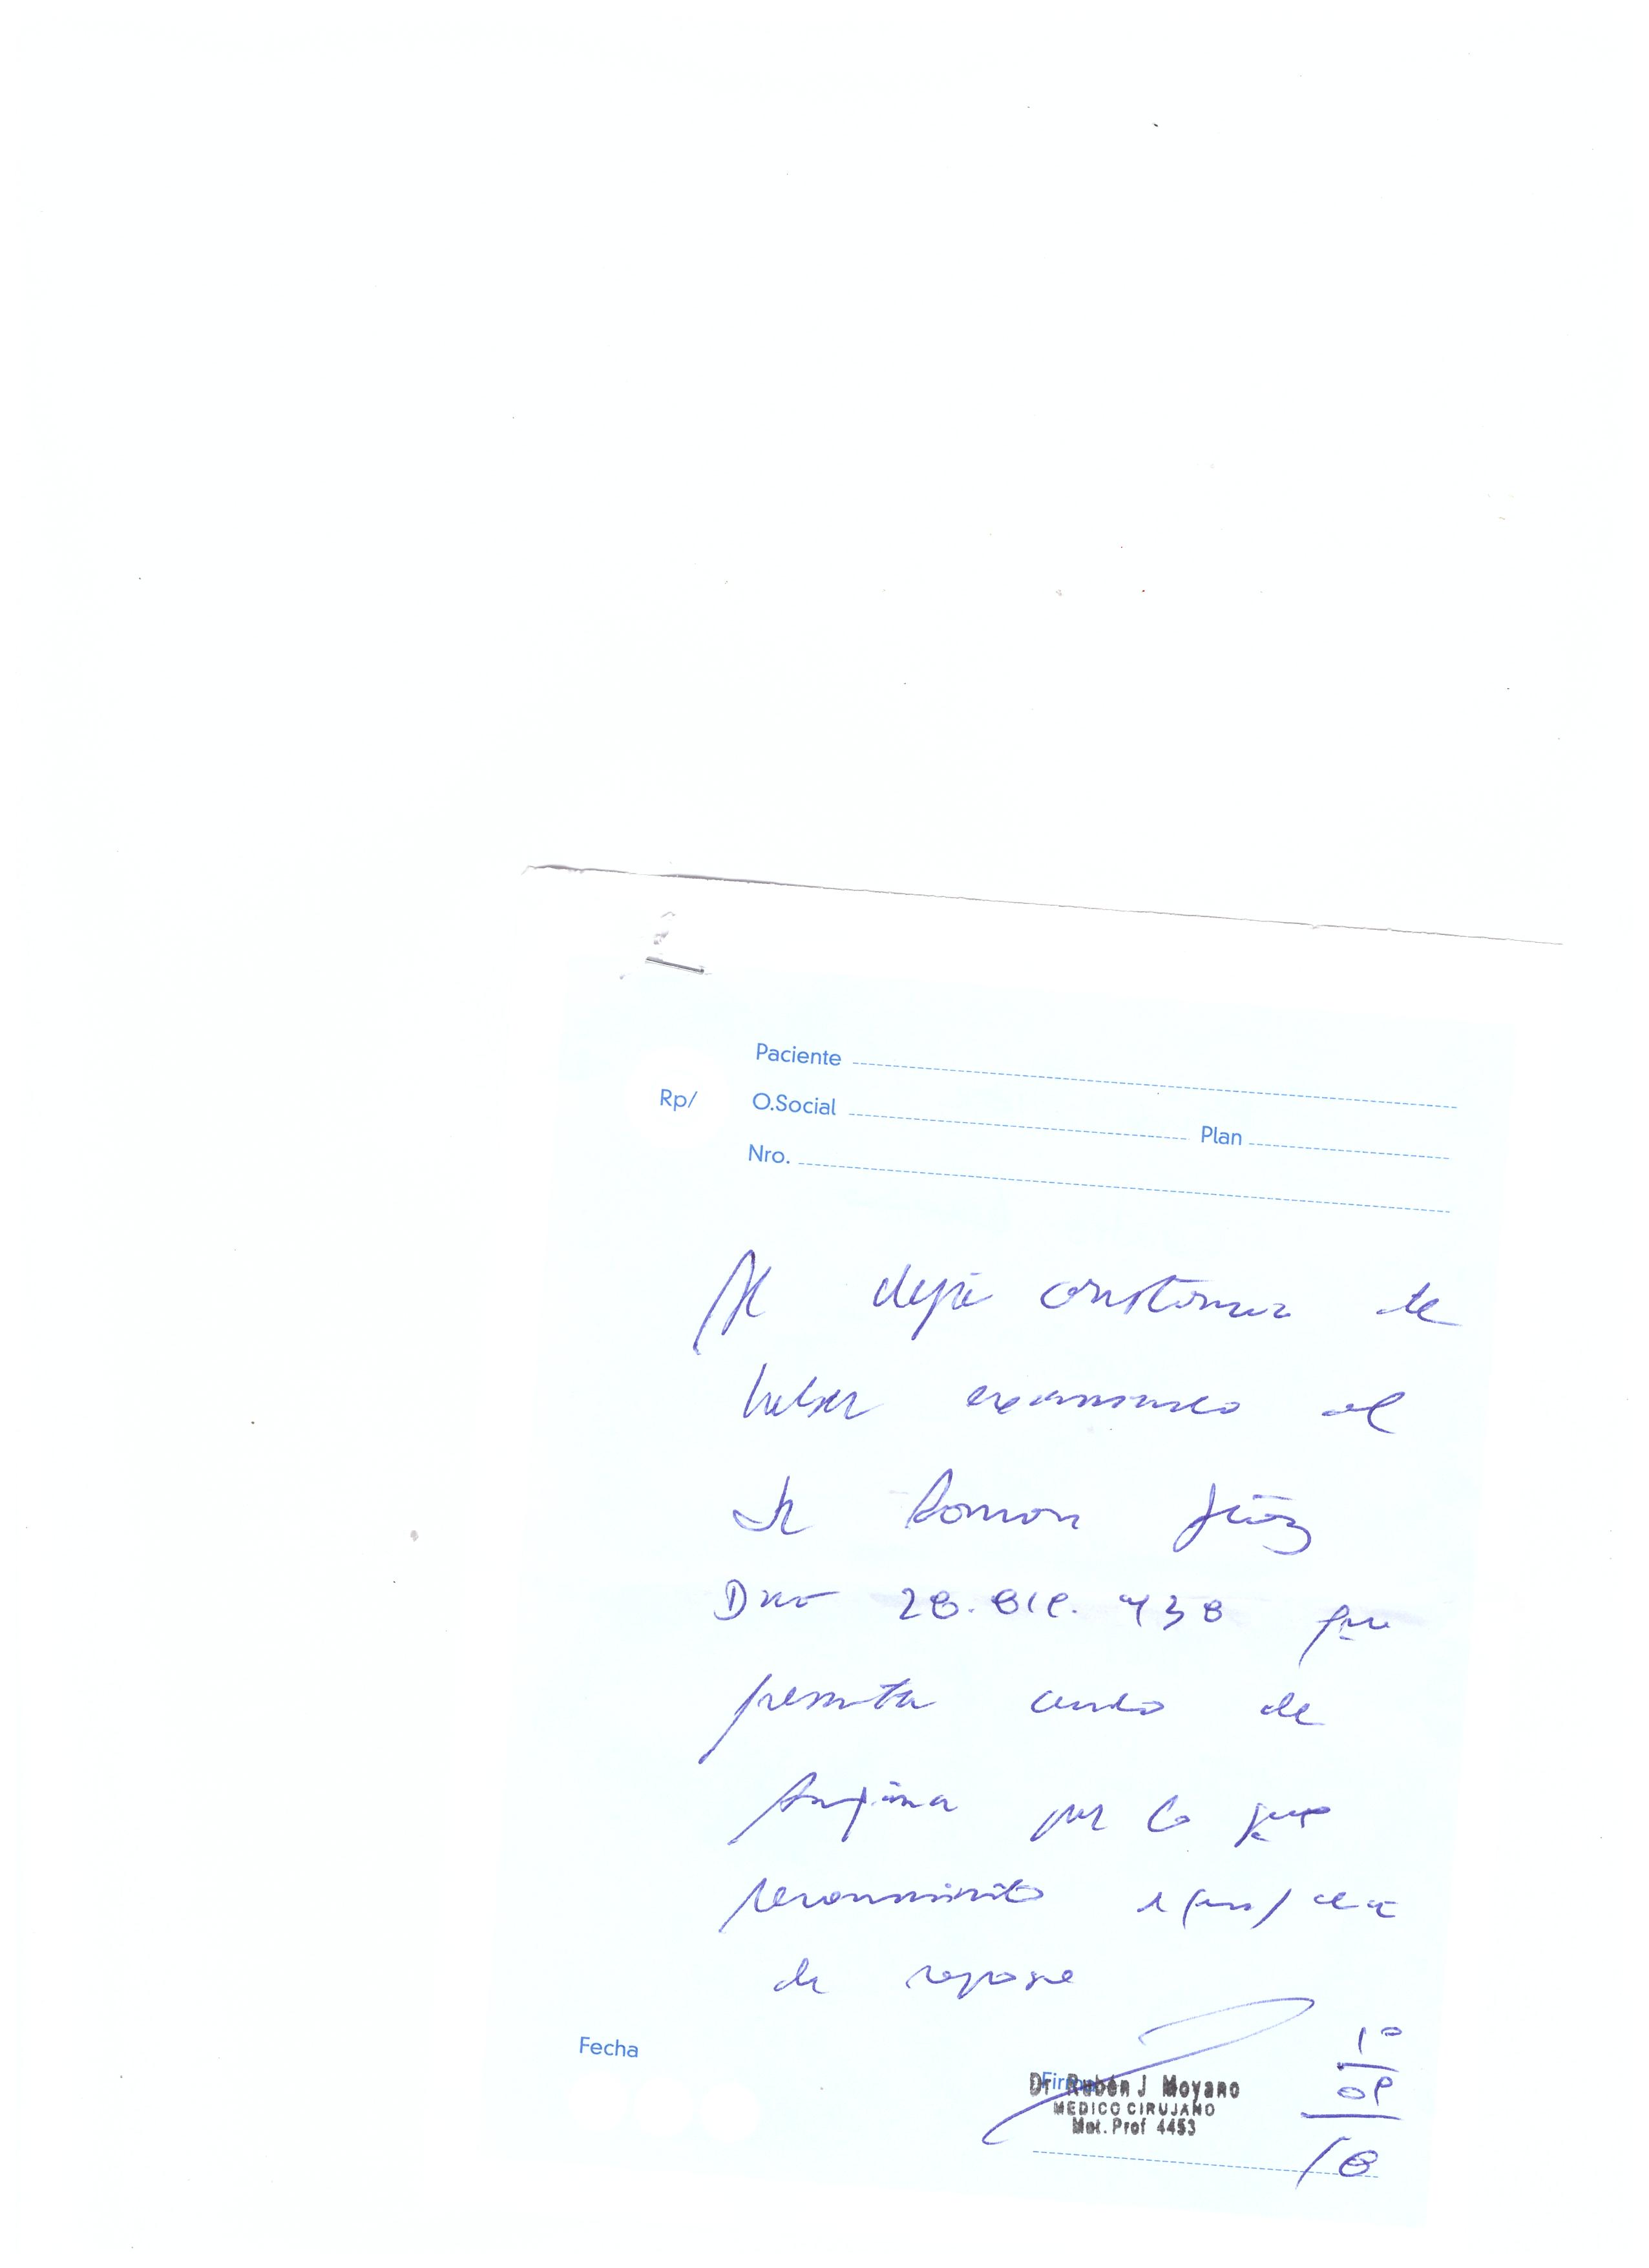 Paciente
Rp/ O.Social Plan
Nro.
Se deja constancia de
haber examinado al
Sr Roman
DNI 28. 438 que
presenta cuadro de
Angina por lo que
recomiendo 1 (un) dia
de reposo
Fecha
Firma
Dr. Rubén J Moyano
MEDICO CIRUJANO
Mat. Prof 4453
10
09
18